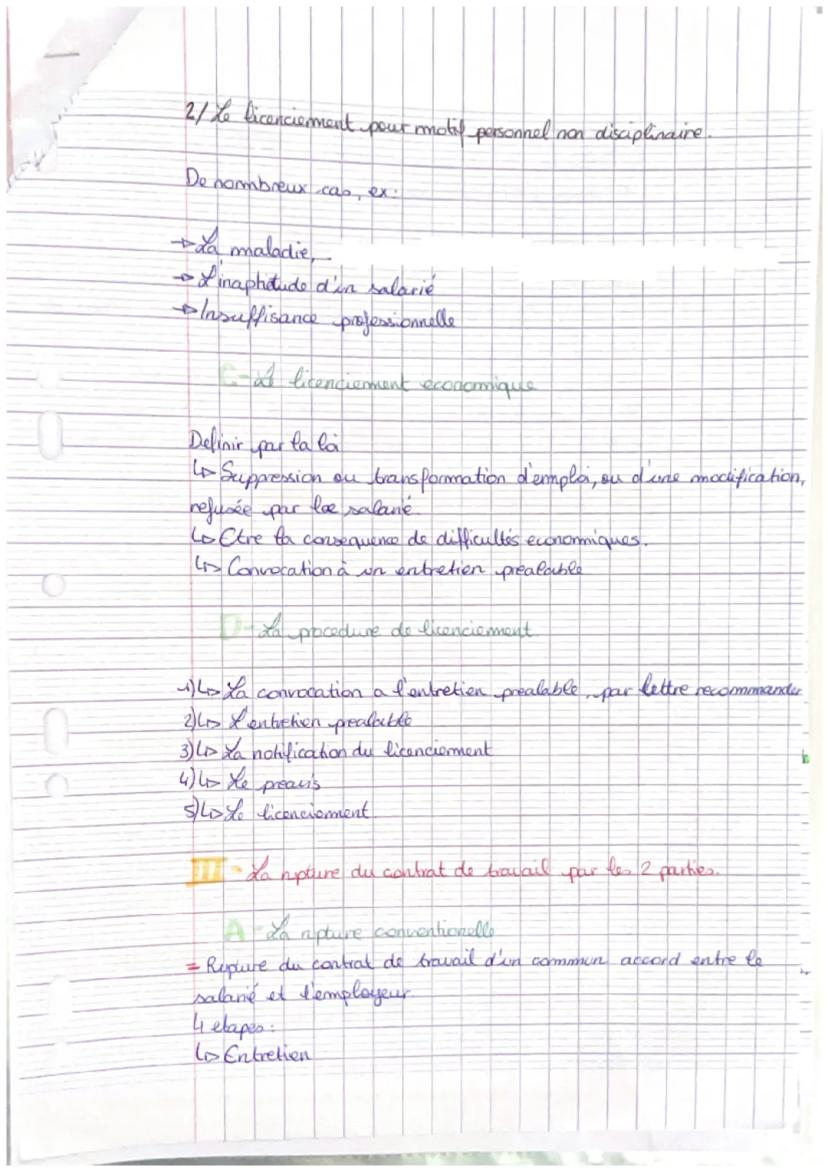 2/ Le licenciement pour motif personnel non disciplinaire.
De nombreux cas, ex:
→ La maladie,
→ L'inaphitude d'un salarié
→ Insuffisance professionnelle
C - Le licenciement economique
Definir par la loi
↳ Suppression ou transformation d'emploi, ou d'une modification,
refusée par le salarié.
↳ Etre la consequence de difficultés economiques.
↳ Convocation à un entretien prealable
D - La procedure de licenciement.
1) ↳ La convocation a l'entretien prealable, par lettre recommander
2) ↳ L'entretien prealable
3) ↳ La notification du licenciement
4) ↳ Le preavis
5) ↳ Le licenciement.
III - La rupture du contrat de travail par les 2 parties.
A - La rupture conventionelle
= Rupture du contrat de travail d'un commun accord entre le
salarié et l'employeur.
4 etapes:
↳ Entretien